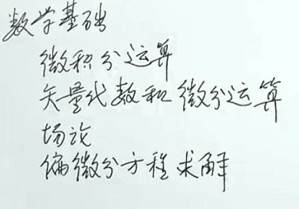 数学基础
微积分运算
矢量代数和微分运算
场论
偏微分方程求解